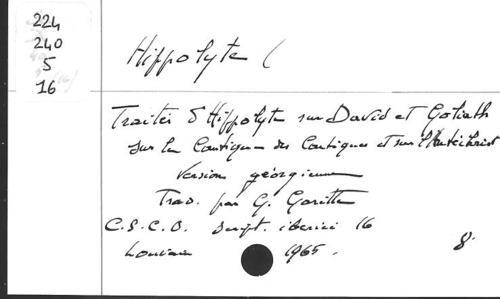 224
240
5
16
Hippolyte (
Traités d'Hippolyte sur David et Goliath
sur le Cantique des Cantiques et sur l'Antéchrist
Version géorgienne
Trad. par G. Garitte
C.S.C.O. Script. iberici 16
Louvain 1965. 8°